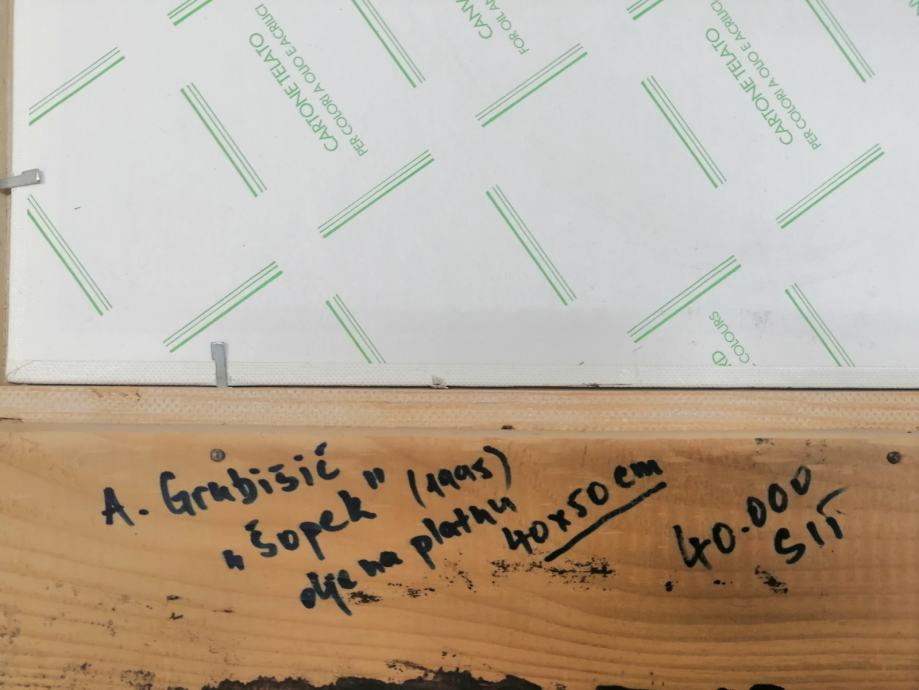 CARTONE TELATO
PER COLORI A OLIO E ACRILICI
CANV
FOR OIL AN
CARTONE TELATO
PER COLORI A OLIO E ACRILICI
COLOURS
A. Grubišić
„Šopek" (1995)
olje na platnu
40x50 cm
40.000
SIT